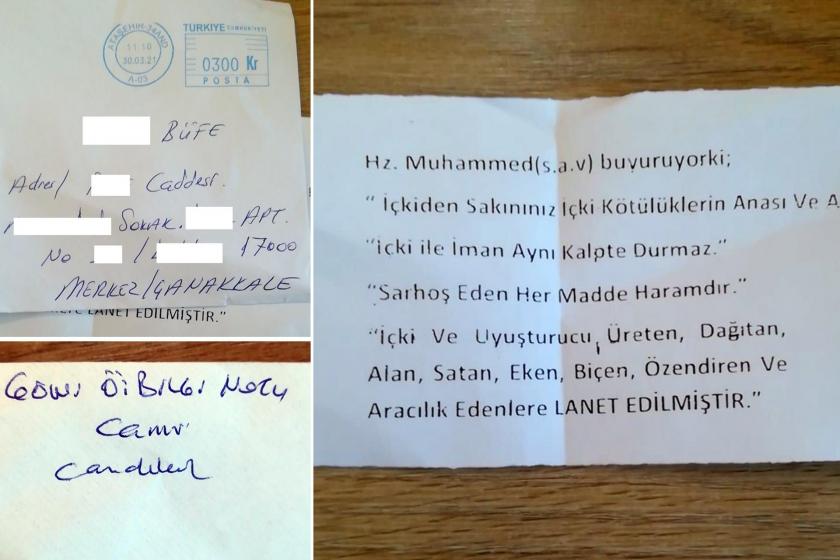 ATAŞEHİR-34AND
11.10
30.03.21
A-03
TÜRKİYE CUMHURİYETİ
0300 Kr
POSTA
BÜFE
Adres/ Caddesi.
SOKAK. APT.
No / 17000
MERKEZ/ÇANAKKALE
LANET EDİLMİŞTİR."
Camr
Hz. Muhammed(s.a.v) buyuruyorki;
" İçkiden Sakınınız İçki Kötülüklerin Anası Ve A
"İçki ile İman Aynı Kalpte Durmaz."
"Sarhoş Eden Her Madde Haramdır."
"İçki Ve Uyuşturucu Üreten, Dağıtan,
Alan, Satan, Eken, Biçen, Özendiren Ve
Aracılık Edenlere LANET EDİLMİŞTİR."